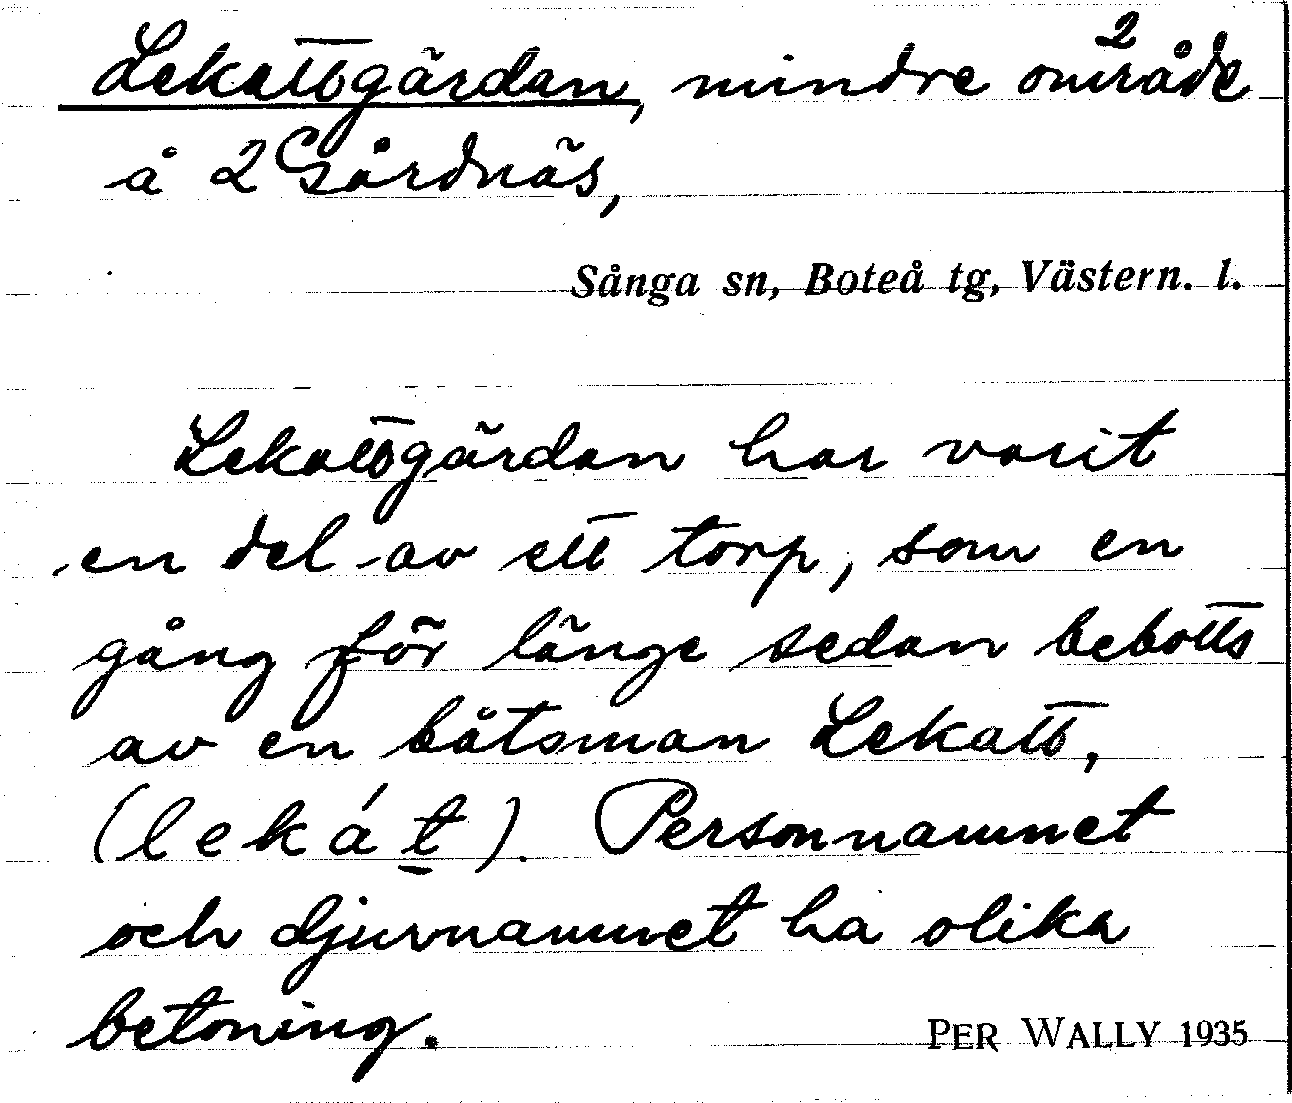 Lekattsgärdan, mindre område 2
å 2 Gårdnäs,
Sånga sn, Boteå tg, Västern. l.
Lekattsgärdan har varit
en del av ett torp, som en
gång för länge sedan bebotts
av en båtsman Lekatt,
(lekát). Personnamnet
och djurnamnet ha olika
betoning.
PER WALLY 1935